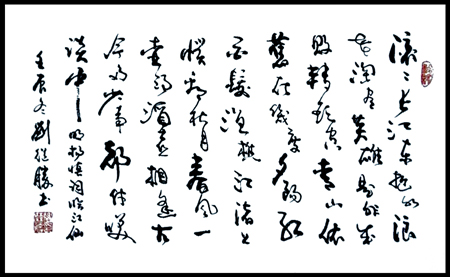 滚々长江东逝水浪
花淘尽英雄是非成
败转头空青山依
舊在幾度夕阳红
白髮渔樵江渚上
惯看秋月春风一
壶浊酒喜相逢古
今多少事都付笑
谈中 明杨慎词临江仙
壬辰冬劉继胜书